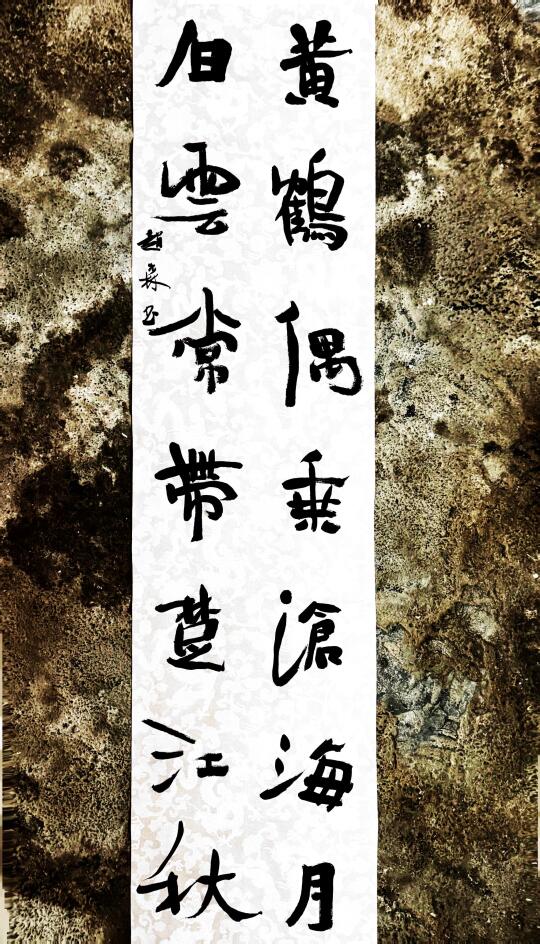 黄鶴偶乘滄海月
白雲常帶楚江秋
趙森